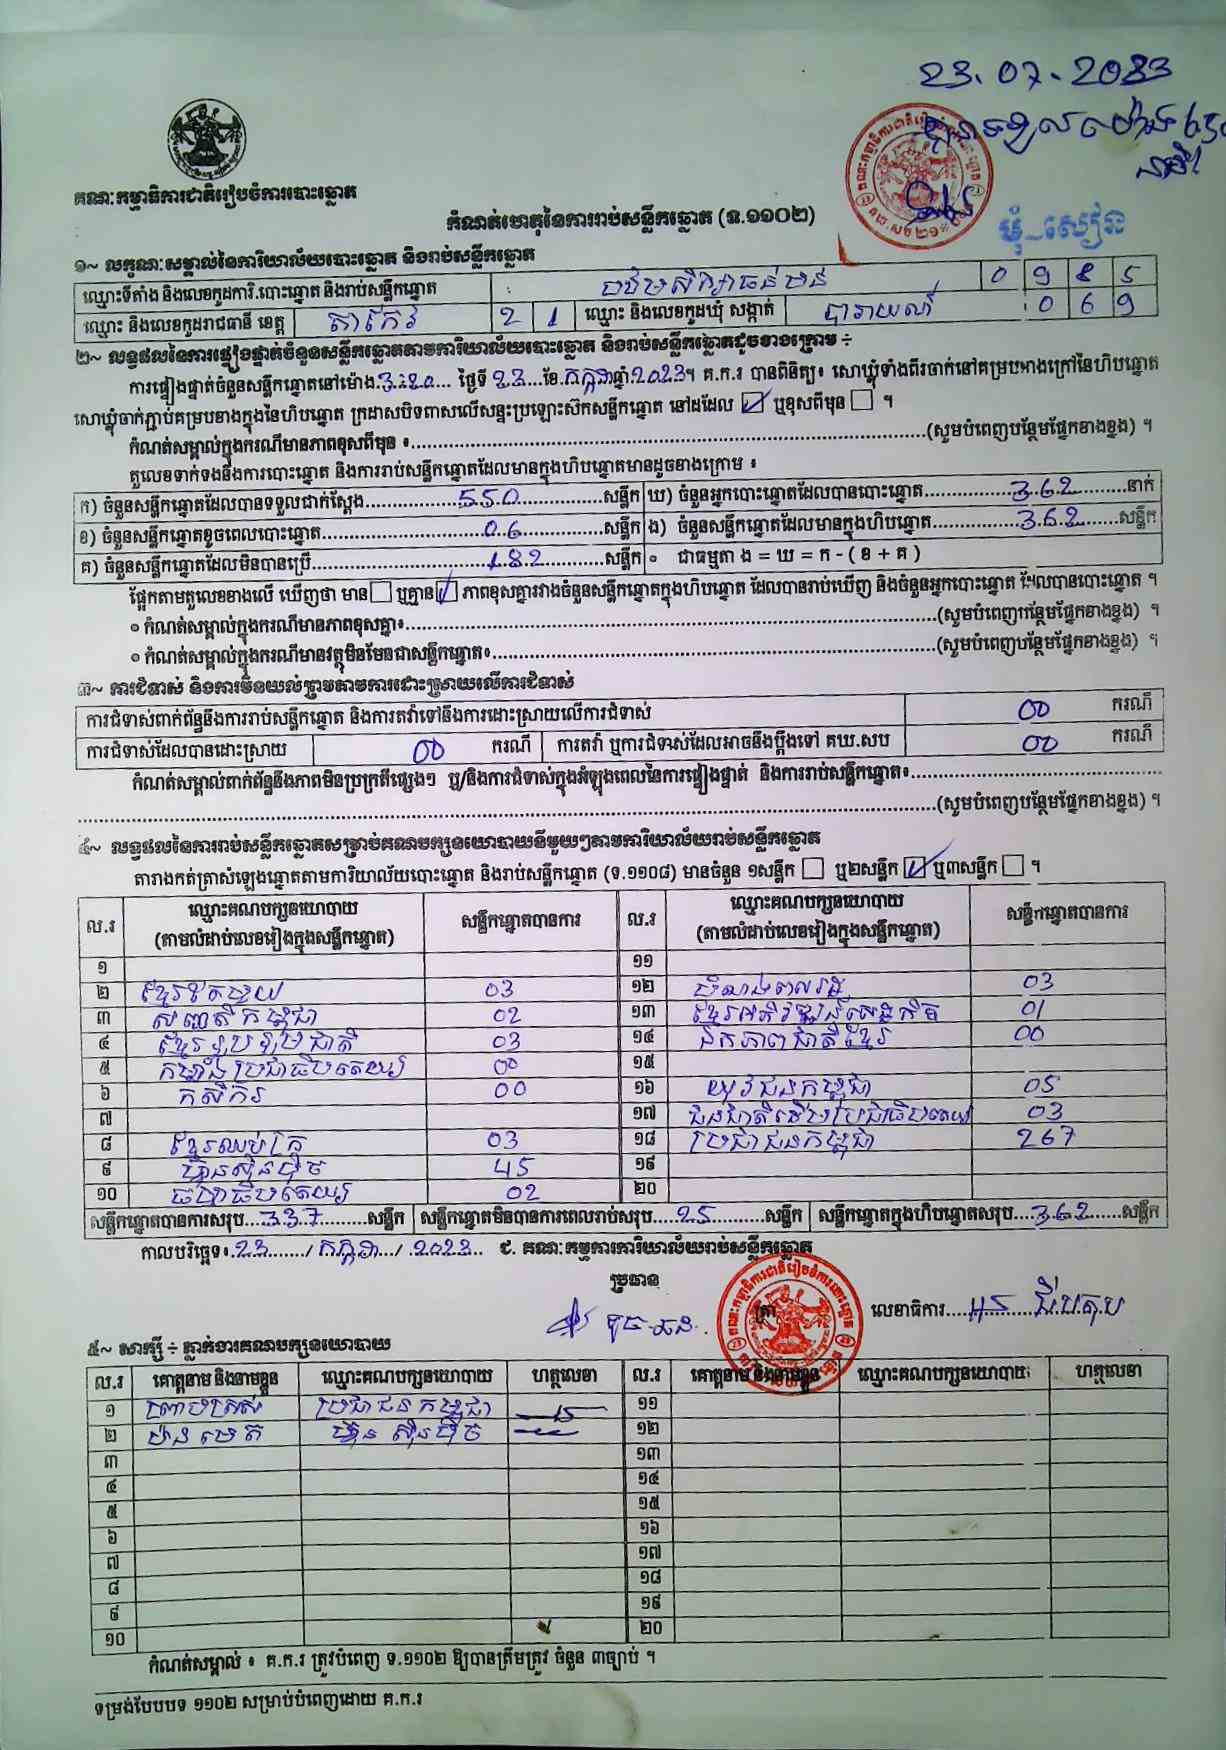 23.07.2023
គណៈកម្មាធិការជាតិរៀបចំការបោះឆ្នោត
កំណត់ហេតុនៃការរាប់សន្លឹកឆ្នោត (ទ.១១០២)
១~ លក្ខណៈសម្គាល់នៃការិយាល័យបោះឆ្នោត និងរាប់សន្លឹកឆ្នោត
ឈ្មោះទីតាំង និងលេខកូដការិ.បោះឆ្នោត និងរាប់សន្លឹកឆ្នោត : 0 9 8 5
ឈ្មោះ និងលេខកូដរាជធានី ខេត្ត តាកែវ 2 1 ឈ្មោះ និងលេខកូដឃុំ សង្កាត់ 0 6 9
២~ លទ្ធផលនៃការផ្ទៀងផ្ទាត់ចំនួនសន្លឹកឆ្នោតតាមការិយាល័យបោះឆ្នោត និងរាប់សន្លឹកឆ្នោតដូចខាងក្រោម ÷
ការផ្ទៀងផ្ទាត់ចំនួនសន្លឹកឆ្នោតនៅម៉ោង 3:20 ថ្ងៃទី 23 ខែ កក្កដា ឆ្នាំ 2023។ គ.ក.រ បានពិនិត្យ៖ សោឃ្លុំទាំងពីរចាក់នៅគម្របខាងក្រៅនៃហិបឆ្នោត
សោឃ្លុំចាក់ភ្ជាប់គម្របខាងក្នុងនៃហិបឆ្នោត ក្រដាសបិទពាសលើសន្ទះប្រឡោះស៊កសន្លឹកឆ្នោត នៅដដែល ☑ ឬខុសពីមុន ☐ ។
កំណត់សម្គាល់ក្នុងករណីមានភាពខុសពីមុន ៖..........(សូមបំពេញបន្ថែមផ្នែកខាងខ្នង) ។
តួលេខទាក់ទងនឹងការបោះឆ្នោត និងការរាប់សន្លឹកឆ្នោតដែលមានក្នុងហិបឆ្នោតមានដូចខាងក្រោម ៖
ក) ចំនួនសន្លឹកឆ្នោតដែលបានទទួលជាក់ស្តែង 550 សន្លឹក ឃ) ចំនួនអ្នកបោះឆ្នោតដែលបានបោះឆ្នោត 362 នាក់
ខ) ចំនួនសន្លឹកឆ្នោតខូចពេលបោះឆ្នោត 06 សន្លឹក ង) ចំនួនសន្លឹកឆ្នោតដែលមានក្នុងហិបឆ្នោត 362 សន្លឹក
គ) ចំនួនសន្លឹកឆ្នោតដែលមិនបានប្រើ 182 សន្លឹក ០ ជាធម្មតា ង = ឃ = ក - ( ខ + គ )
ផ្អែកតាមតួលេខខាងលើ ឃើញថា មាន ☐ ឬគ្មាន ☑ ភាពខុសគ្នារវាងចំនួនសន្លឹកឆ្នោតក្នុងហិបឆ្នោត ដែលបានរាប់ឃើញ និងចំនួនអ្នកបោះឆ្នោត ដែលបានបោះឆ្នោត ។
០ កំណត់សម្គាល់ក្នុងករណីមានភាពខុសគ្នា៖..........(សូមបំពេញបន្ថែមផ្នែកខាងខ្នង) ។
០ កំណត់សម្គាល់ក្នុងករណីមានវត្ថុមិនមែនជាសន្លឹកឆ្នោត៖..........(សូមបំពេញបន្ថែមផ្នែកខាងខ្នង) ។
៣~ ការជំទាស់ និងការមិនយល់ព្រមតាមការដោះស្រាយលើការជំទាស់
ការជំទាស់ពាក់ព័ន្ធនឹងការរាប់សន្លឹកឆ្នោត និងការតវ៉ាទៅនឹងការដោះស្រាយលើការជំទាស់ 00 ករណី
ការជំទាស់ដែលបានដោះស្រាយ 00 ករណី ការតវ៉ា ឬការជំទាស់ដែលអាចនឹងប្តឹងទៅ គឃ.សប 00 ករណី
កំណត់សម្គាល់ពាក់ព័ន្ធនឹងភាពមិនប្រក្រតីផ្សេងៗ ឬ/និងការជំទាស់ក្នុងអំឡុងពេលនៃការផ្ទៀងផ្ទាត់ និងការរាប់សន្លឹកឆ្នោត៖..........
..........(សូមបំពេញបន្ថែមផ្នែកខាងខ្នង) ។
៤~ លទ្ធផលនៃការរាប់សន្លឹកឆ្នោតសម្រាប់គណបក្សនយោបាយនីមួយៗតាមការិយាល័យរាប់សន្លឹកឆ្នោត
តារាងកត់ត្រាសំឡេងឆ្នោតតាមការិយាល័យបោះឆ្នោត និងរាប់សន្លឹកឆ្នោត (ទ.១១០៨) មានចំនួន ១សន្លឹក ☐ ឬ២សន្លឹក ☑ ឬ៣សន្លឹក ☐ ។
ល.រ ឈ្មោះគណបក្សនយោបាយ (តាមលំដាប់លេខរៀងក្នុងសន្លឹកឆ្នោត) សន្លឹកឆ្នោតបានការ ល.រ ឈ្មោះគណបក្សនយោបាយ (តាមលំដាប់លេខរៀងក្នុងសន្លឹកឆ្នោត) សន្លឹកឆ្នោតបានការ
១ ១១
២ ខ្មែរតែមួយ 03 ១២ 03
៣ សញ្ជាតិកម្ពុជា 02 ១៣ ខ្មែរអភិវឌ្ឍន៍សេដ្ឋកិច្ច 01
៤ ខ្មែររួបរួមជាតិ 03 ១៤ ឯកភាពជាតិខ្មែរ 00
៥ កម្លាំងប្រជាធិបតេយ្យ 00 ១៥
៦ កសិករ 00 ១៦ យុវជនកម្ពុជា 05
៧ ១៧ ជនជាតិដើមប្រជាធិបតេយ្យ 03
៨ ខ្មែរឈប់ក្រ 03 ១៨ ប្រជាជនកម្ពុជា 267
៩ ហ្វ៊ុនស៊ិនប៉ិច 45 ១៩
១០ ធម្មាធិបតេយ្យ 02 ២០
សន្លឹកឆ្នោតបានការសរុប 337 សន្លឹក សន្លឹកឆ្នោតមិនបានការពេលរាប់សរុប 25 សន្លឹក សន្លឹកឆ្នោតក្នុងហិបឆ្នោតសរុប 362 សន្លឹក
កាលបរិច្ឆេទ៖ 23 / កក្កដា / 2023 ៩. គណៈកម្មការការិយាល័យរាប់សន្លឹកឆ្នោត
ប្រធាន
ត្រា
លេខាធិការ
៥~ សាក្សី ÷ ភ្នាក់ងារគណបក្សនយោបាយ
ល.រ គោត្តនាម និងនាមខ្លួន ឈ្មោះគណបក្សនយោបាយ ហត្ថលេខា ល.រ គោត្តនាម និងនាមខ្លួន ឈ្មោះគណបក្សនយោបាយ ហត្ថលេខា
១ ប្រជាជនកម្ពុជា ១១
២ ហ្វ៊ុនស៊ិនប៉ិច ១២
៣ ១៣
៤ ១៤
៥ ១៥
៦ ១៦
៧ ១៧
៨ ១៨
៩ ១៩
១០ ២០
កំណត់សម្គាល់ ៖ គ.ក.រ ត្រូវបំពេញ ទ.១១០២ ឱ្យបានត្រឹមត្រូវ ចំនួន ៣ច្បាប់ ។
ទម្រង់បែបបទ ១១០២ សម្រាប់បំពេញដោយ គ.ក.រ